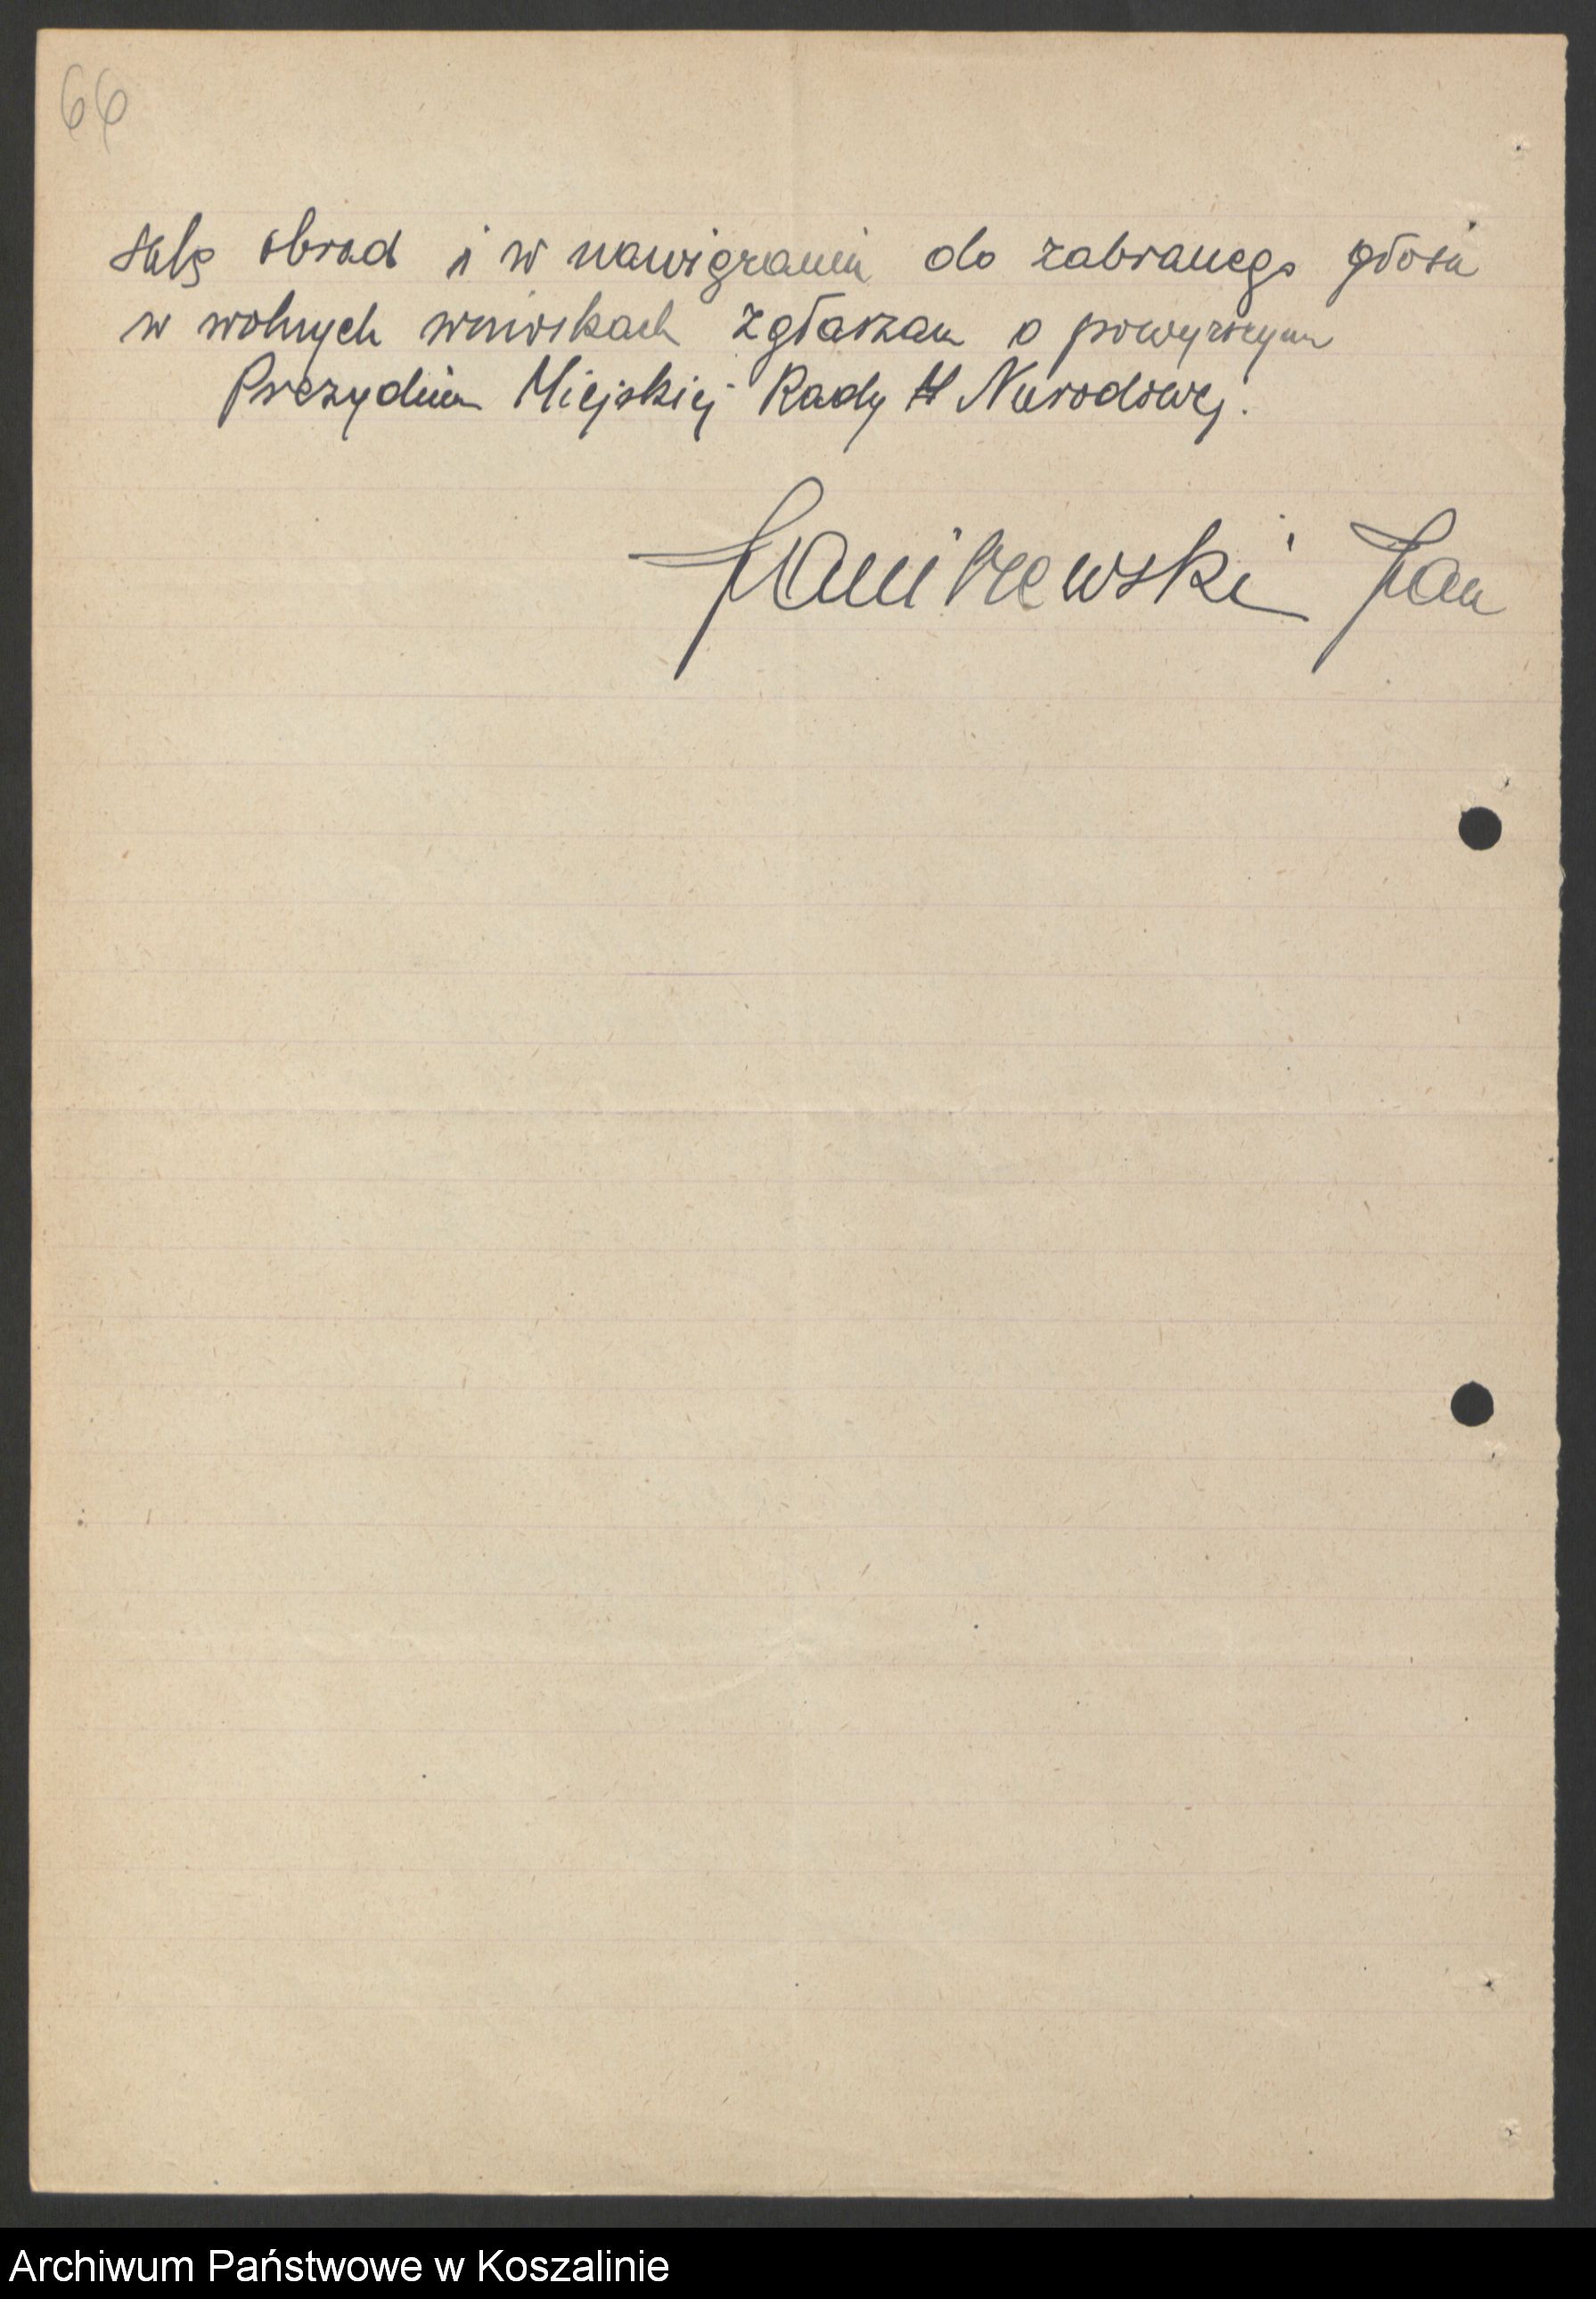 66
salę obrad i w nawiązaniu do zabranego głosu
w wolnych wnioskach zgłaszam o powyższym
Prezydium Miejskiej Rady Narodowej.
Jan
Archiwum Państwowe w Koszalinie